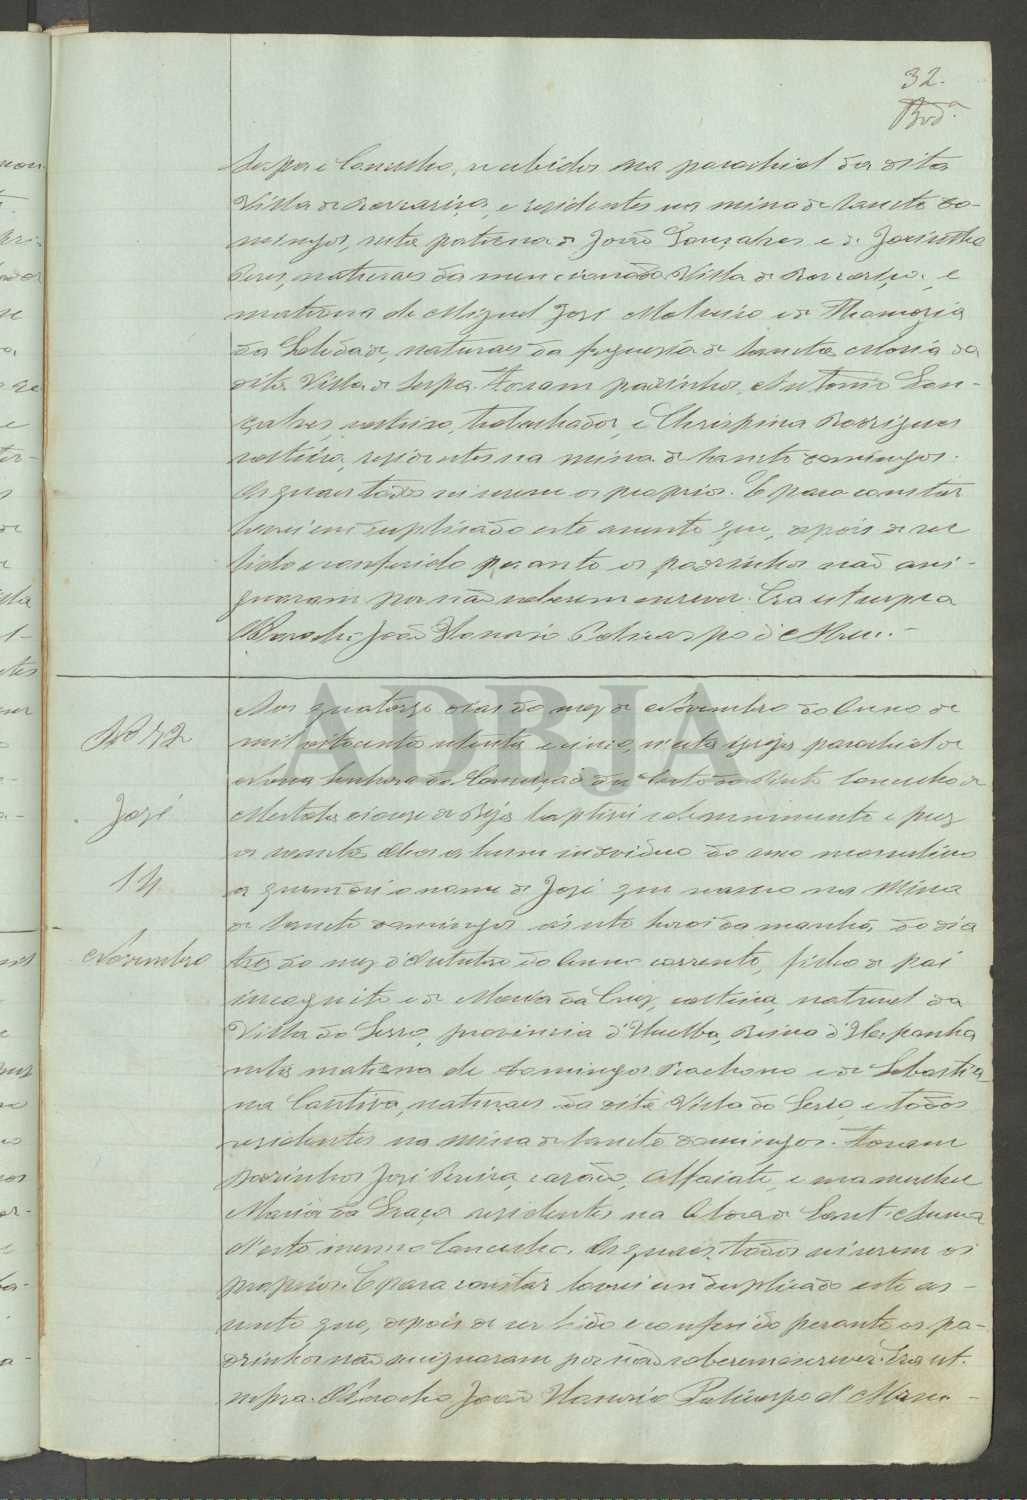 32.
Serpa e Concelho, recebidos na parochial da dita
Villa de e residentes na mina de Sancto Do-
mingos, neto paterno de João Gonçalves e de Jacintha
naturaes da mencionada Villa de e
materna de Miguel José e de
da Soledade, naturaes da freguesia de Sancta Maria da
dita Villa de Serpa. Foram padrinhos Antonio Gon-
çalves, solteiro, trabalhador, e Chrispina Rodrigues
solteira, residentes na mina de Sancto Domingos.
Os quaes todos sei serem os proprios. E para constar
lavrei em duplicado este assento que, depois de ser
lido e conferido perante os padrinhos não assi-
gnaram por não saberem escrever. Era ut supra
O Parocho João Honorio Policarpo d'
Nº 42
José
14
Novembro
Aos quatorze dias do mez de Novembro do Anno de
mil oitocentos oitenta e cinco, n'esta igreja parochial de
Nossa Senhora da Conceição da Concelho de
Mertola diocese de Béja baptisei solemnemente e puz
os sanctos oleos a hum individuo do sexo masculino
a quem dei o nome de José que nasceu na Mina
de Sancto Domingos ás oito horas da manhã do dia
trez do mez d'Outubro do Anno corrente, filho de pai
incognito e de Maria da Cruz, solteira, natural da
Villa do Serro, provincia d'Huelba, Reino d'Hespanha
neto materna de Domingos e de Sebastia-
na naturaes da dita Villa do Serro, e todos
residentes na mina de Sancto Domingos. Foram
padrinhos José Pereira, casado, Alfaiate, e sua mulher
Maria da Graça residentes na Aldea de Sant'Anna
d'este mesmo Concelho. Os quaes todos sei serem os
proprios. E para constar lavrei em duplicado este as-
sento que, depois de ser lido e conferido perante os pa-
drinhos não assignaram por não saberem escrever. Era ut
supra. O Parocho João Honorio Policarpo d'
ADBJA